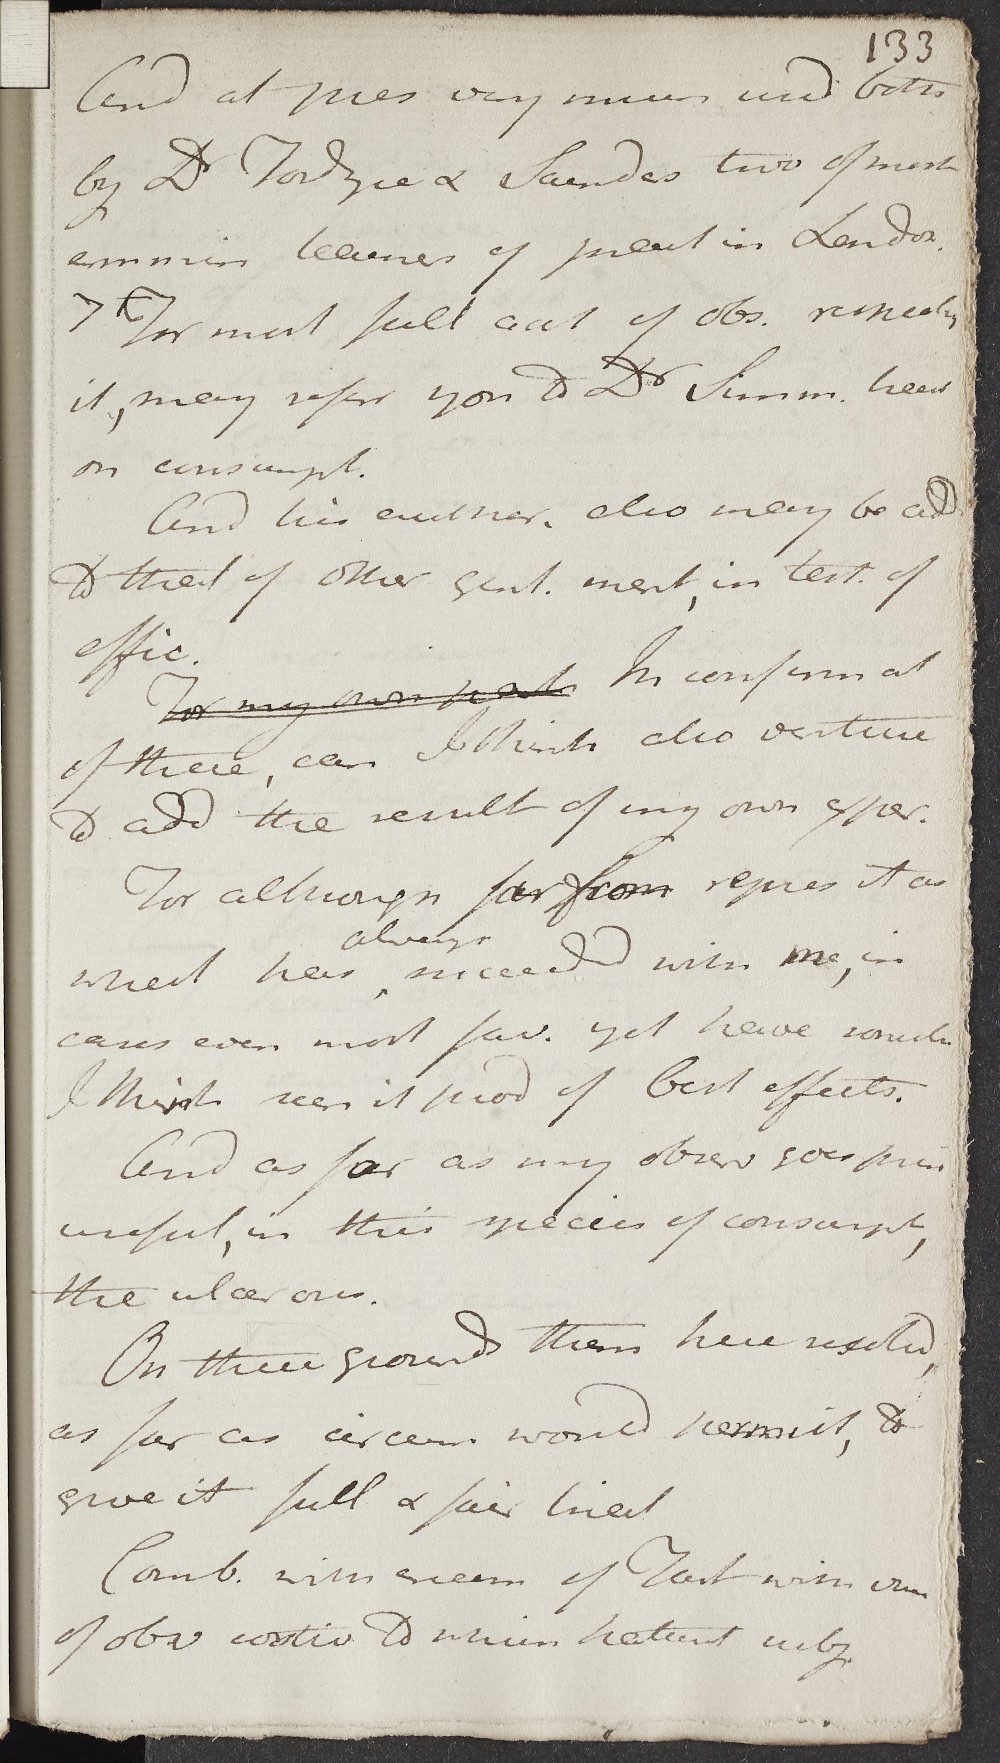 133
And at pres very much used both
by Dr Fordyce & Saunders two of most
eminen teachers of pract in London.
For most full acct of obs. respectg
it, may refer you to Dr Simm. treat
on consumpt.
And his author. also may be add
to that of other gent. ment, in test. of
effic.
For my own part In confirmat
of these, can I think also venture
to add the result of my own exper.
For although far from repres it as
always
what has succeeded with me, in
cases even most fav. yet have somet
I think seen it prod of best effects.
And as far as my observ goes prin
useful, in this species of consumpt,
the ulcerous.
On these grounds then have resolv,
as far as circum would permit, to
give it full & fair trial
Comb. with cream of Tart with view
of obv costiv to which patient subj.